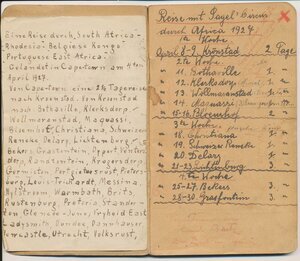 Eine Reise durch South Africa-
Rhodesia: Belgise Kongo.
Portuguese East Africa:
Gelandet in Capetown am 4ten
April 1927.
Von Capetown eine 2½ Tagereise
nach Kronstad. Von Kronstad
nach Bothaville, Klerksdorp,
Wollmoranstad, Maquassi,
Bloemhof, Christiana, Schweizer
Reneke, Delary, Lichtenburg,
Bekers, Grasfontein, Depot Venter
dorp, Randfontein, Krugersdorp
Germiston, Pertpietersrust, Pieters
burg, Louis Trihardt, Messina
Nylstrom, Warmbath, Brits,
Rustenburg, Pretoria, Stander
Von Glencoe June, Fryheid East
Ladysmith, Dundee, Dannhauser
Newcastle, Utrecht, Volksrust,
Reise mit Pagel's Circus
durch Africa 1927
1te Woche
April 8-9. Kronstad 2 Tage
2te Woche
" 11. Bothaville 1. "
" 12. Klerksdorp 1. "
" 13. Wollmoranstad 1. "
" 14. Maquassi 1. "
" 15-16. Bloemhof 2. "
3te Woche
" 18. Christiana 1. "
" 19. Schweizer Reneke 1. "
" 20. Delary 1. "
" 21-23. Lichtenburg 3. "
4te Woche
" 25-27. Bekers 3. "
" 28-30. Grasfontein 3. "